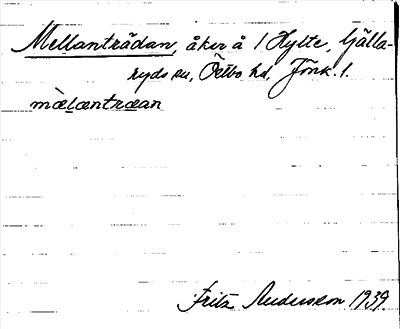 Mellanträdan, åker å 1 Hylte, Gjälla-
ryds sn, Östbo hd, Jönk. l.
mæ̀læntræan
Fritz Andersson 1939